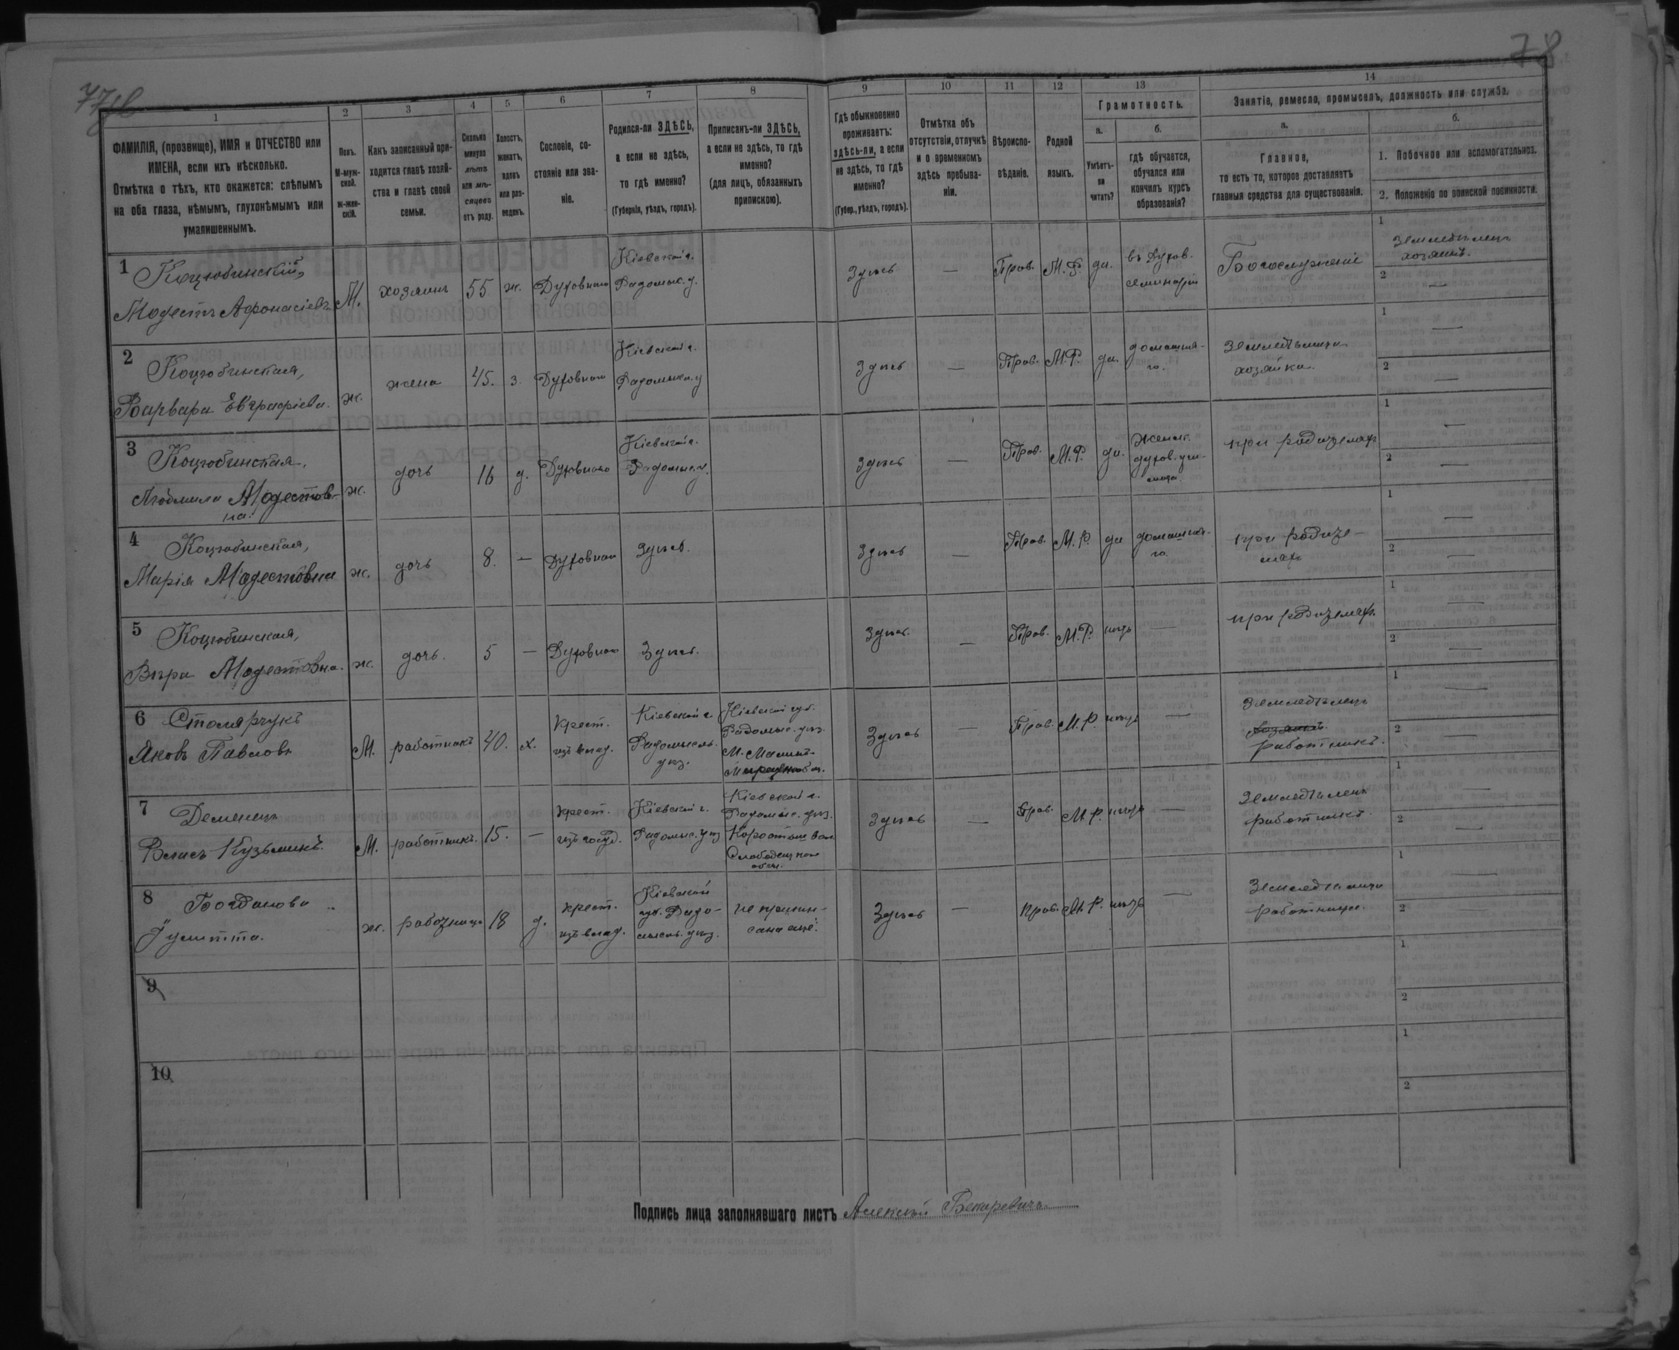 77об
78
1
2
3
4
5
6
7
8
9
10
11
12
13
14
ФАМИЛІЯ, (прозвище), ИМЯ и ОТЧЕСТВО или
ИМЕНА, если ихъ нѣсколько.
Отмѣтка о тѣхъ, кто окажется: слѣпымъ
на оба глаза, нѣмымъ, глухонѣмымъ или
умалишеннымъ.
Полъ.
М-муж-
ской.
ж-жен-
скій.
Какъ записанный при-
ходится главѣ хозяй-
ства и главѣ своей
семьи.
Сколько
минуло
лѣтъ
или мѣ-
сяцевъ
отъ роду.
Холостъ,
женатъ,
вдовъ
или раз-
веденъ.
Сословіе, со-
стояніе или зва-
ніе.
Родился-ли ЗДѢСЬ,
а если не здѣсь,
то гдѣ именно?
(Губернія, уѣздъ, городъ).
Приписанъ-ли ЗДѢСЬ,
а если не здѣсь, то гдѣ
именно?
(для лицъ, обязанныхъ
припискою).
Гдѣ обыкновенно
проживаетъ:
здѣсь-ли, а если
не здѣсь, то гдѣ
именно?
(Губер., уѣздъ, городъ).
Отмѣтка объ
отсутствіи, отлучкѣ
и о временномъ
здѣсь пребыва-
ніи.
Вѣроиспо-
вѣданіе.
Родной
языкъ.
Грамотность.
а.
Умѣетъ-
ли
читать?
б.
гдѣ обучается,
обучался или
кончилъ курсъ
образованія?
Занятіе, ремесло, промыселъ, должность или служба.
а.
Главное,
то есть то, которое доставляетъ
главныя средства для существованія.
б.
1. Побочное или вспомогательное.
2. Положеніе по воинской повинности.
1 Коцюбинскій,
Модестъ Афонасіевъ
М.
хозяинъ
55
ж.
Духовного
Кіевской г.
Радомыс. у.
Здѣсь
—
Прав.
М. Р.
да.
въ Духов.
семинаріи
Богослуженіе
1
земледѣлецъ
хозяинъ.
2
—
2 Коцюбинская,
Варвара Евграфіева.
ж.
жена
45.
з.
Духовного
Кіевской г.
Радомысл. у
Здѣсь
—
Прав.
М. Р.
да.
домашня-
го.
Земледѣлица
хозяйка.
1
—
2
—
3 Коцюбинская,
Людмила Модестов-
на.
ж.
дочь
16
д.
Духовного
Кіевской г.
Радомыс. у.
Здѣсь
—
Прав.
М. Р.
да.
Женск.
духов. учи-
лища
при родителяхъ
1
—
2
—
4 Коцюбинская,
Марія Модестовна
ж.
дочь
8.
—
Духовного
здѣсь.
Здѣсь
—
Прав.
М. Р.
да
домашня-
го.
при родите-
ляхъ
1
—
2
—
5 Коцюбинская,
Вѣра Модестовна.
ж.
дочь.
5
—
Духовного
Здѣсь.
Здѣсь.
—
Прав.
М. Р
нѣтъ
—
при родителяхъ
1
—
2
—
6 Столярчукъ
Яковъ Павловъ
М.
работникъ
40.
х.
Крест.
изъ влад.
Кіевской г
Радомысль.
уѣз.
Кіевской губ.
Радомыс. уѣз.
М. Малинъ
Здѣсь
—
Прав.
М. Р.
нѣтъ
—
Земледѣлецъ
хозяинъ
работникъ.
1
—
2
—
7 Деменецъ
Кузьминъ.
М.
работникъ.
15.
—
крест.
изъ госуд.
Кіевской г.
Радомыс. уѣз
Кіевской г.
Радомыс. уѣз.
Здѣсь
—
Прав.
М. Р.
нѣтъ
—
Земледѣлецъ
работникъ.
1
—
2
—
8 Богданова
Гулитта.
ж.
работница
18
д.
крест.
изъ влад.
Кіевской
губ. Радо-
мысль. уѣз.
не припи-
сана еще.
Здѣсь
—
прав.
М. Р.
нѣтъ
—
Земледѣлица
работница.
1
—
2
—
9
1
2
10
1
2
Подпись лица заполнявшаго листъ Алексѣй Бекаревичъ